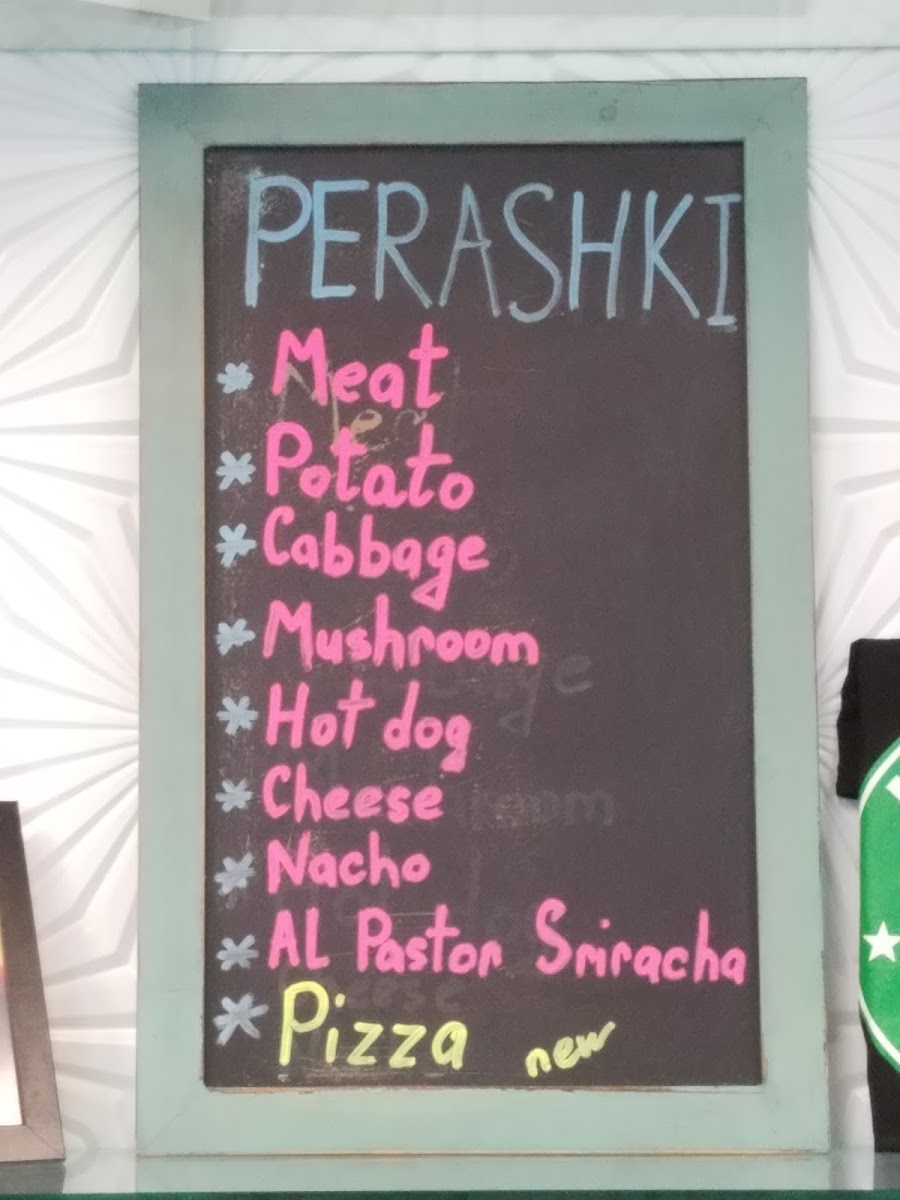 PERASHKI
* Meat
* Potato
* Cabbage
* Mushroom
* Hot dog
* Cheese
* Nacho
* AL Pastor Sriracha
* Pizza new